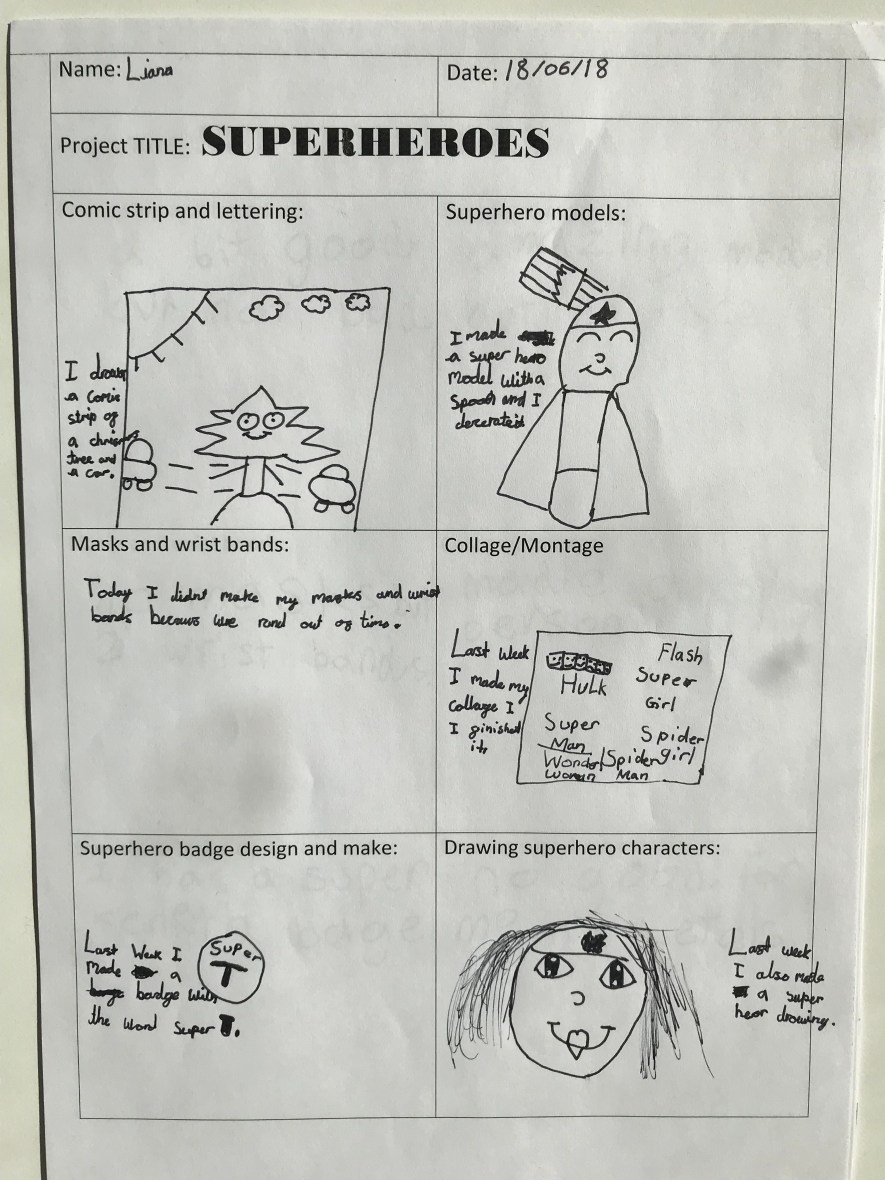 Name: Liana
Date: 18/06/18
Project TITLE: SUPERHEROES
Comic strip and lettering:
I draw
a comic
strip of
a chrism
tree and
a car.
Superhero models:
I made
a super hero
Model with a
Spoon and I
decerated
Masks and wrist bands:
Today I didnt make my masks and wrist
bands becaus we rand out of time.
Collage/Montage
Last week
I made my
collage I
I finished
it,
Flash
Hulk
Super
Girl
Super
Man
Spider
girl
Wonder
Woman
Spider
Man
Superhero badge design and make:
Last Week I
made a
badge with
the word Super T.
Super
T
Drawing superhero characters:
Last week
I also made
a super
hear drowing.